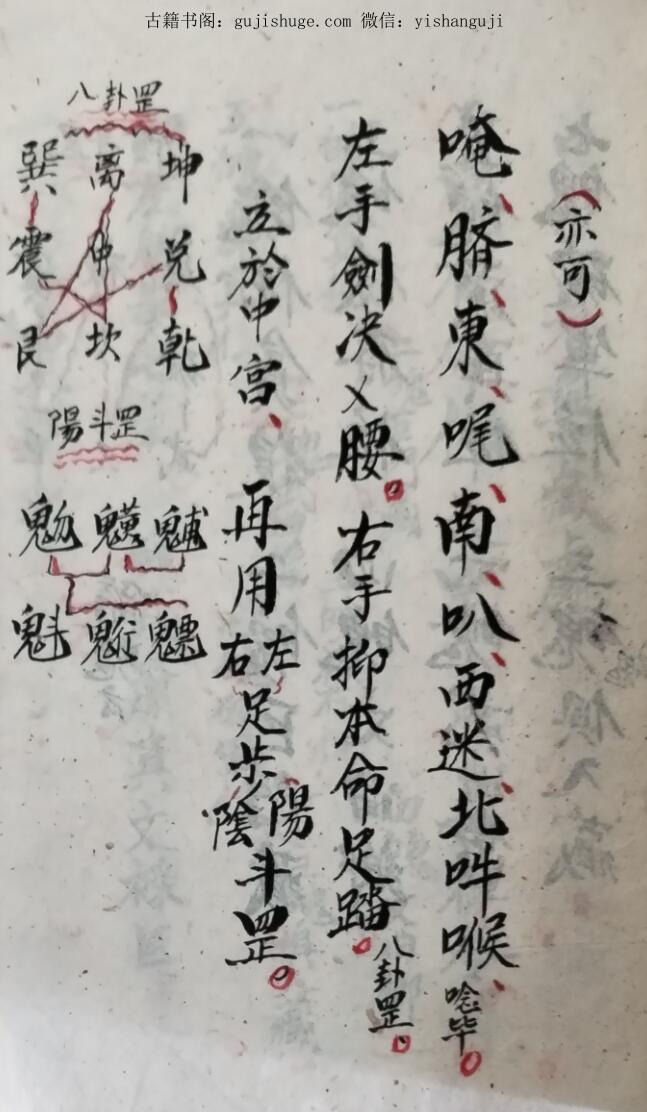 古籍书阁：gujishuge.com 微信：yishanguji
（亦可）
唵、臍、東、呢、南、叭、西迷、北吽喉、唸毕。
左手劍决乂腰。右手抑本命足踏。八卦罡。
立於中宫、再用左右足步陽陰斗罡。
八卦罡
坤 离 巽
兑 中 震
乾 坎 艮
陽斗罡
魓 䰢 魩
魒 𩲃 魁